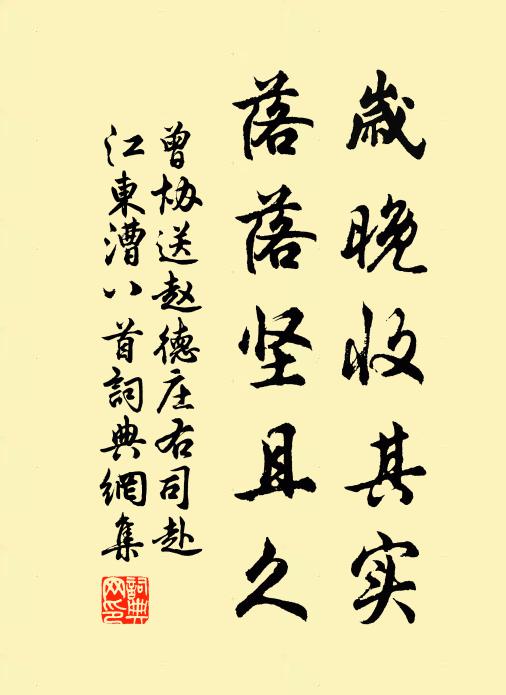 岁晚收其实
落落坚且久
曾协送赵德庄右司赴
江東漕八首詞典網集
詞典网印